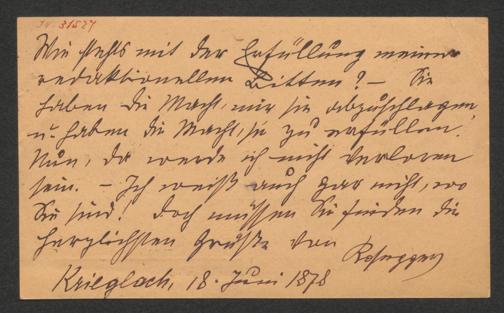 J.N. 31527
Wie stehts mit der Erfüllung meiner
redaktionellen Bitten? – Sie
haben die Macht, mir sie abzuschlagen
u. haben die Macht, sie zu erfüllen.
Nun, da werde ich nicht verloren
sein. – Ich weiß auch gar nicht, wo
Sie sind! Doch müssen Sie finden die
herzlichsten Grüße von
Rosegger
Krieglach, 18. Juni 1878